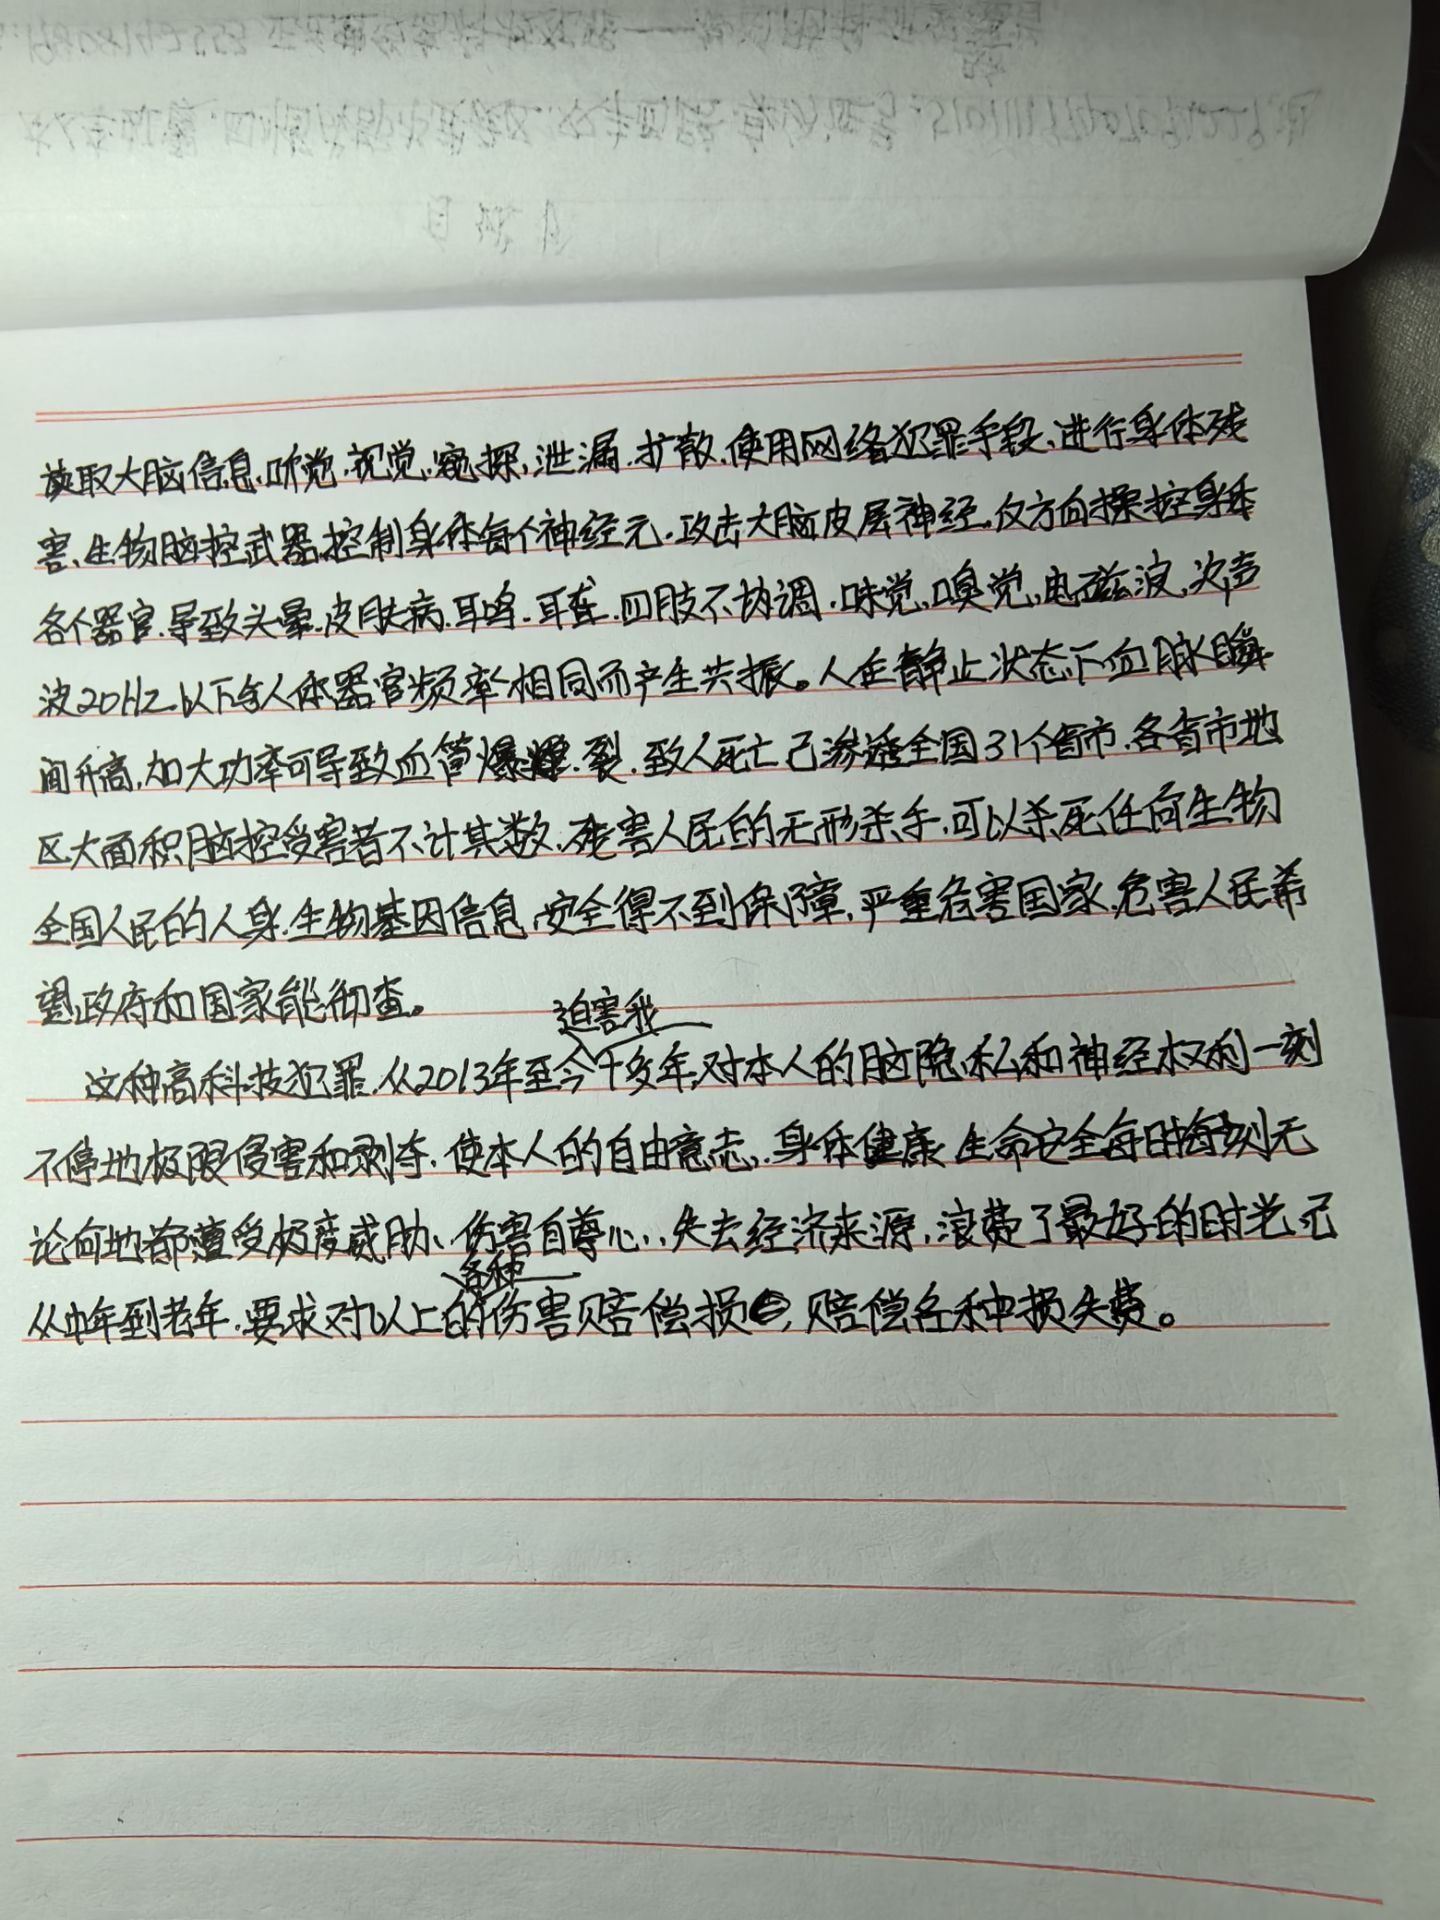 读取大脑信息.听觉.视觉.窥探.泄漏.扩散.使用网络犯罪手段.进行身体残
害.生物脑控武器.控制身体每个神经元.攻击大脑皮层神经.仪方向操控身体
各个器官.导致头晕.皮肤病.耳鸣.耳聋.四肢不协调.味觉.嗅觉.电磁波.次声
波20Hz以下与人体器官频率相同而产生共振。人在静止状态下血脉瞬
间升高,加大功率可导致血管爆裂.致人死亡已渗透全国31个省市.各省市地
区大面积脑控受害者不计其数.残害人民的无形杀手.可以杀死任何生物
全国人民的人身.生物基因信息安全得不到保障,严重危害国家.危害人民希
望政府和国家能彻查。
迫害我
这种高科技犯罪.从2013年至今十多年,对本人的脑隐私和神经权利一刻
不停地极限侵害和剥夺.使本人的自由意志,.身体健康 生命安全每时每刻无
论何地都遭受极度威胁、伤害自尊心..失去经济来源,浪费了最好的时光已
各种
从中年到老年.要求对以上的伤害赔偿损,赔偿各种损失费。